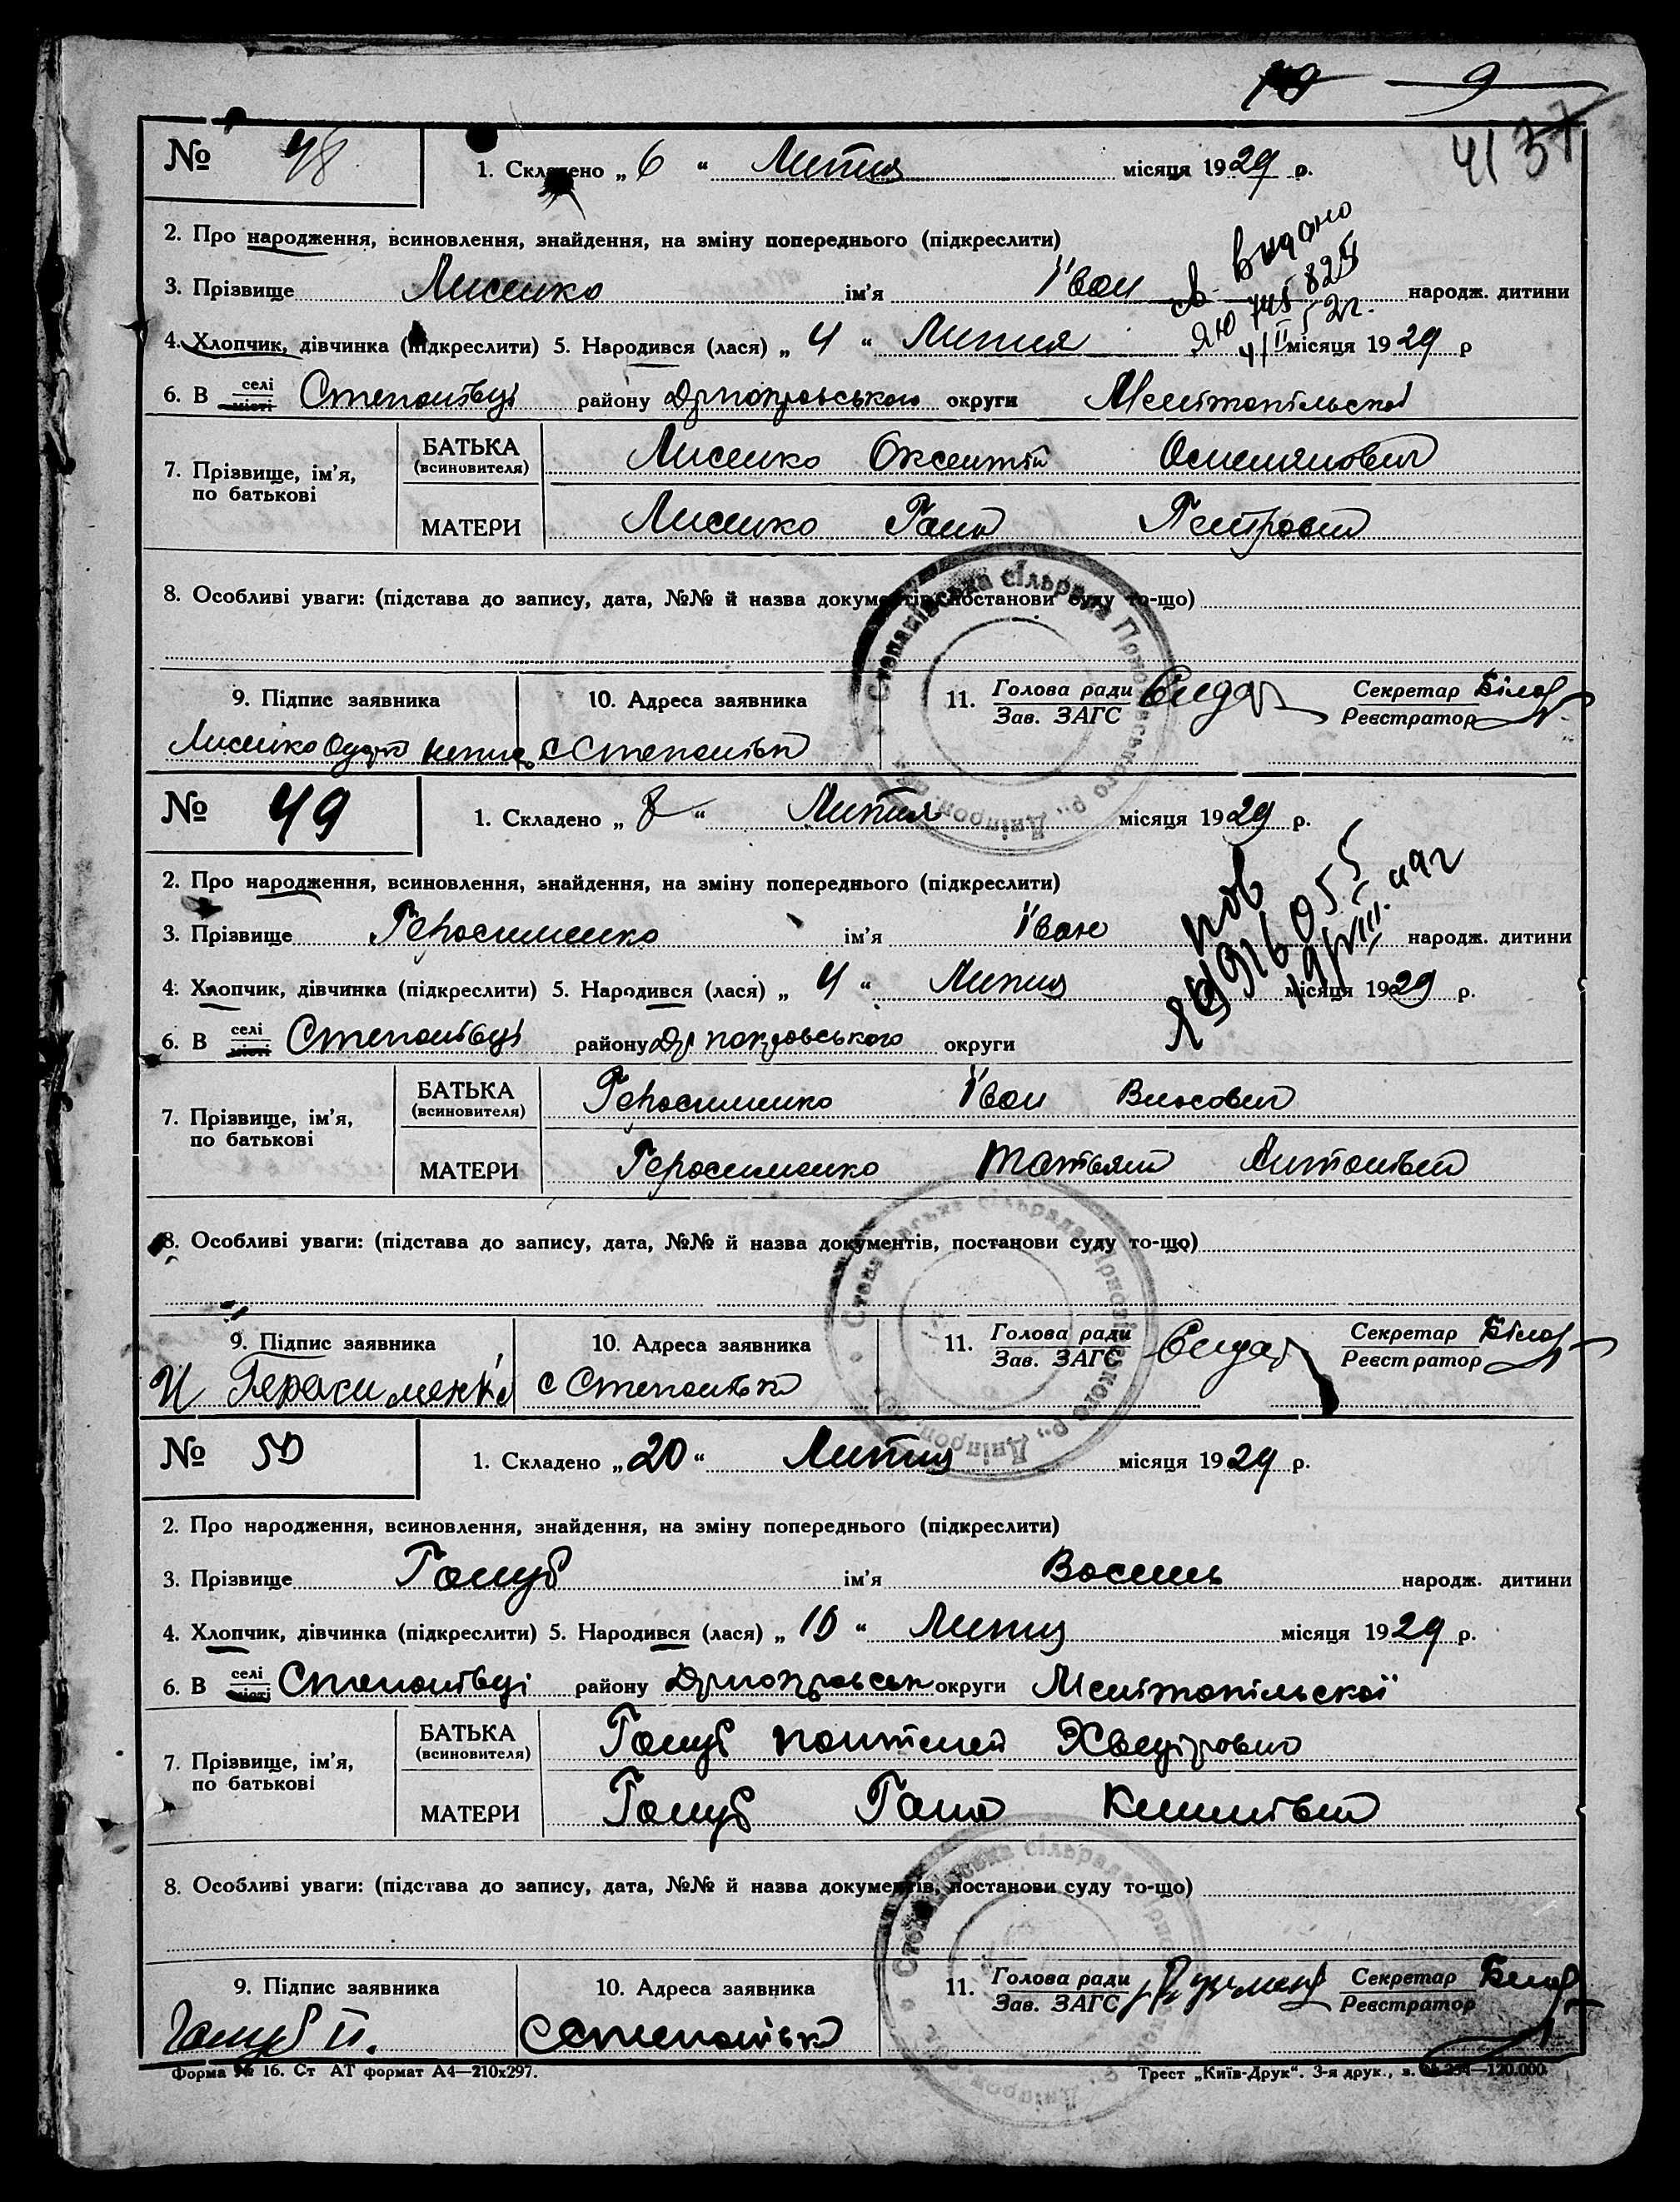 9
41 37
№ 48
1. Складено „ 6 “ Липня місяця 1929 р.
2. Про народження, всиновлення, знайдення, на зміну попереднього (підкреслити)
св. видано
3. Прізвище Лисенко ім'я Іван народж. дитини
ЯЮ 745825
4. Хлопчик, дівчинка (підкреслити) 5. Народився (лася) „ 4 “ Липня місяця 1929 р
6. В селі місті Степанівці району округи Мелітопільської
7. Прізвище, ім'я, по батькові
БАТЬКА (всиновителя) Лисенко Оксентій
МАТЕРИ Лисенко Гана Петровна
8. Особливі уваги: (підстава до запису, дата, №№ й назва документів, постанови суду то-що)
9. Підпис заявника
10. Адреса заявника
11. Голова ради Зав. ЗАГС
Секретар Реєстратор
Лисенко
с Степанівка
№ 49
1. Складено „ 8 “ Липня місяця 1929 р.
2. Про народження, всиновлення, знайдення, на зміну попереднього (підкреслити)
пов
3. Прізвище Герасименко ім'я Іван народж. дитини
4. Хлопчик, дівчинка (підкреслити) 5. Народився (лася) „ 4 “ Липня місяця 1929 р.
6. В селі місті Степанівці району округи
7. Прізвище, ім'я, по батькові
БАТЬКА (всиновителя) Герасименко Іван Власович
МАТЕРИ Герасименко Татьяна Антонівна
8. Особливі уваги: (підстава до запису, дата, №№ й назва документів, постанови суду то-що)
9. Підпис заявника
10. Адреса заявника
11. Голова ради Зав. ЗАГС
Секретар Реєстратор
И Герасименко
с Степанівка
№ 50
1. Складено „ 20 “ Липня місяця 1929 р.
2. Про народження, всиновлення, знайдення, на зміну попереднього (підкреслити)
3. Прізвище Голуб ім'я Василь народж. дитини
4. Хлопчик, дівчинка (підкреслити) 5. Народився (лася) „ 10 “ Липня місяця 1929 р.
6. В селі місті Степанівці району округи Мелітопільскої
7. Прізвище, ім'я, по батькові
БАТЬКА (всиновителя) Голуб Пантелей
МАТЕРИ Голуб Гана
8. Особливі уваги: (підстава до запису, дата, №№ й назва документів, постанови суду то-що)
9. Підпис заявника
10. Адреса заявника
11. Голова ради Зав. ЗАГС
Секретар Реєстратор
Голуб П.
с Степанівка
Форма № 16. Ст АТ формат А4—210х297.
Трест „Київ-Друк“. 3-я друк., з. —120.000